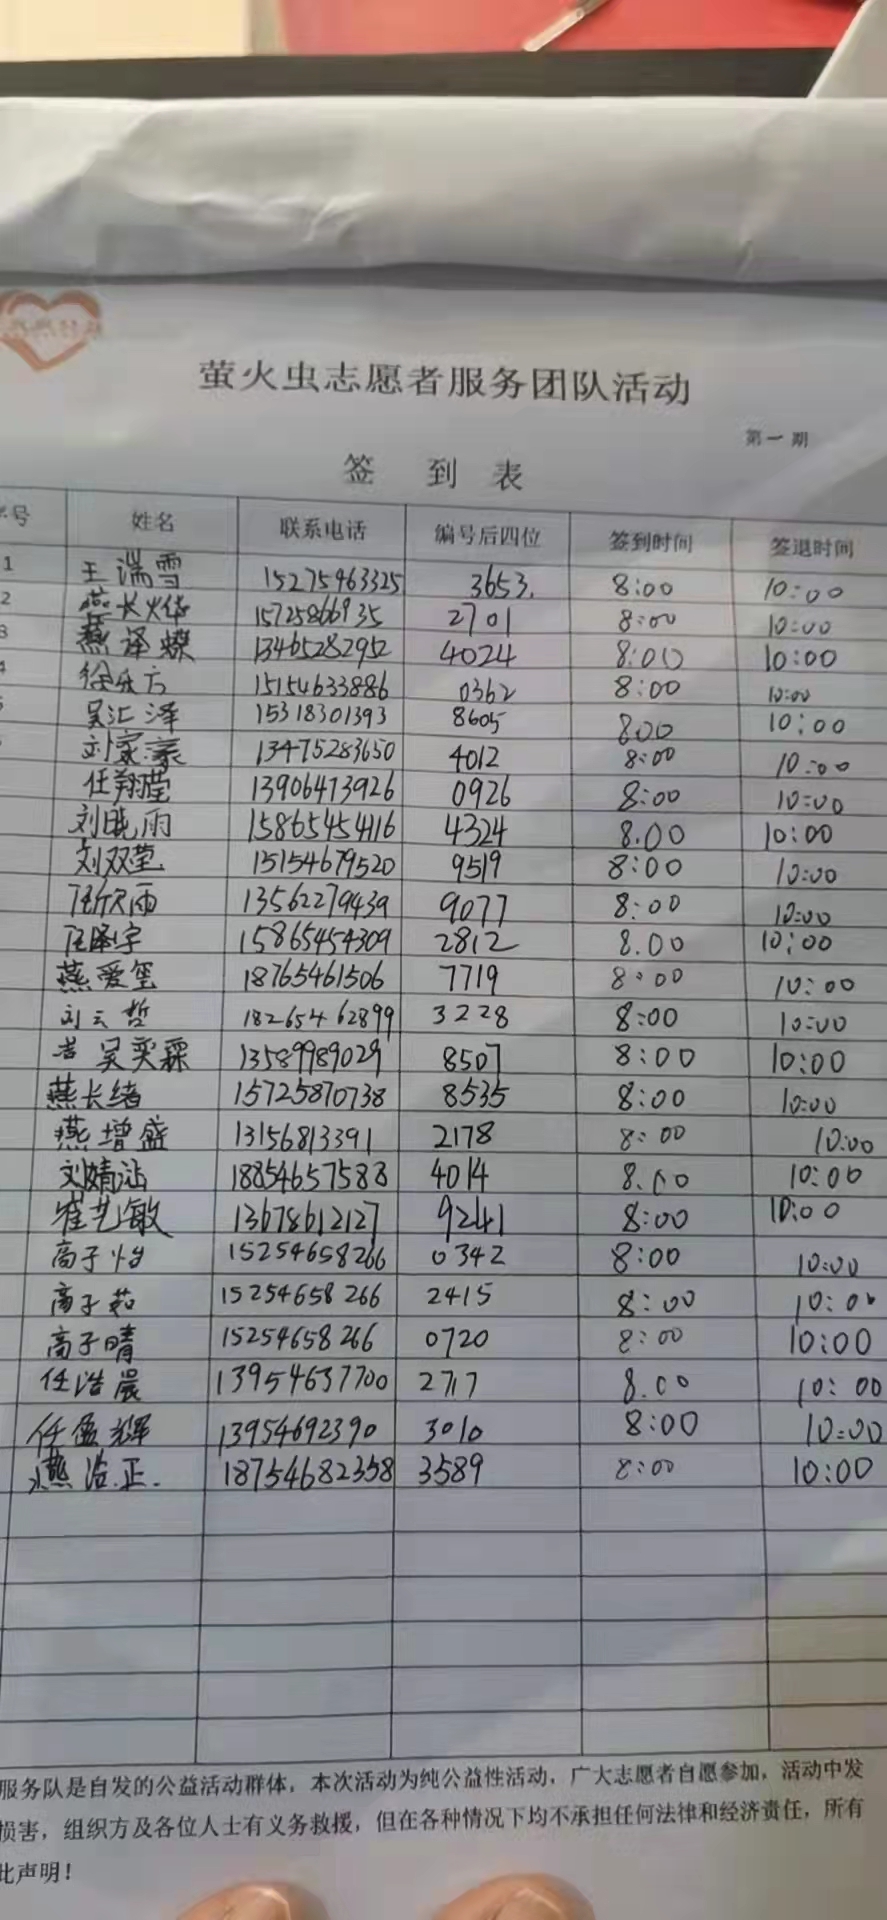 萤火虫志愿者服务团队活动
第一期
签 到 表
号 姓名 联系电话 编号后四位 签到时间 签退时间
1 王瑞雪 15275463325 3653. 8:00 10:00
2 燕长烨 15725866935 2701 8:00 10:00
3 燕泽蝶 13465282952 4024 8:00 10:00
4 徐乐方 15154633886 0362 8:00 10:00
吴汇泽 15318301393 8605 8:00 10:00
刘家豪 13475283650 4012 8:00 10:00
任翔莹 13906473926 0926 8:00 10:00
刘晓雨 15865454416 4324 8.00 10:00
刘双莹 15154679520 9519 8:00 10:00
任欣雨 13562279439 9077 8:00 10:00
任泽宇 15865454309 2812 8.00 10:00
燕爱玺 18765461506 7719 8:00 10:00
刘云哲 18265462899 3228 8:00 10:00
吴奕霖 13589989029 8507 8:00 10:00
燕长绪 15725870738 8535 8:00 10:00
燕增盛 13156813391 2178 8:00 10:00
刘婧沾 18854657588 4014 8.00 10:00
崔艺敏 13678612127 9241 8:00 10:00
高子怡 15254658266 0342 8:00 10:00
高子茹 15254658266 2415 8:00 10:00
高子晴 15254658266 0720 8:00 10:00
任浩晨 13954637700 2717 8.00 10:00
任盈辉 13954692390 3010 8:00 10:00
燕浩正. 18754682358 3589 8:00 10:00
服务队是自发的公益活动群体，本次活动为纯公益性活动，广大志愿者自愿参加，活动中发
损害，组织方及各位人士有义务救援，但在各种情况下均不承担任何法律和经济责任，所有
此声明！